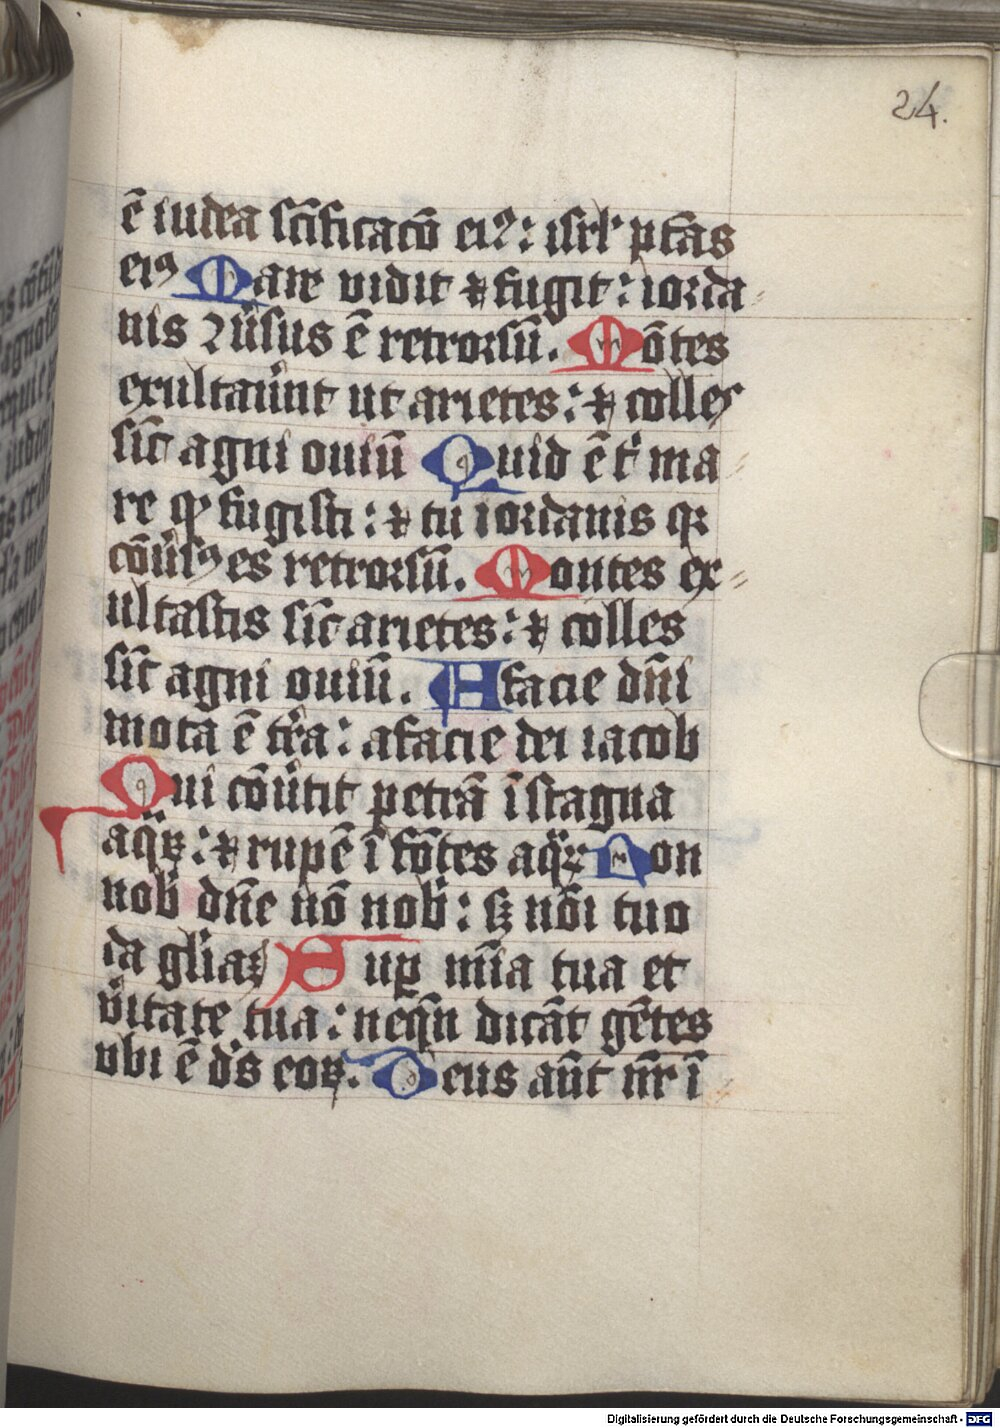 24.
ē iudea sc̄ificacō eiꝰ: isrl' ptās
eiꝰ Mare vidit ⁊ fugit: iorda
nis ꝯu̾sus ē retrorsū. Mōtes
exultau̾nt ut arietes: ⁊ colles
sic̄ agni ouiū Quid ē t̾ ma
re ꝙ fugisti: ⁊ tu iordanis qꝛ
cōu̾sꝰ es retrorsū. Montes ex
ultastis sic̄ arietes: ⁊ colles
sic̄ agni ouiū. A facie dn̄i
mota ē tr̾a: afacie dei iacob
Qui cōu̾tit petrā ī stagna
aqꝝ: ⁊ rupē ī fōtes aqꝝ Non
nob̾ dn̄e nō nob̾: sꝫ nōi tuo
da gl̾iaꝫ Suꝑ mīa tua et
v̾itate tua: neqn̄ dicāt gētes
vbi ē d̾s eoꝝ. Deus aūt nr̄ ī
Digitalisierung gefördert durch die Deutsche Forschungsgemeinschaft - DFG